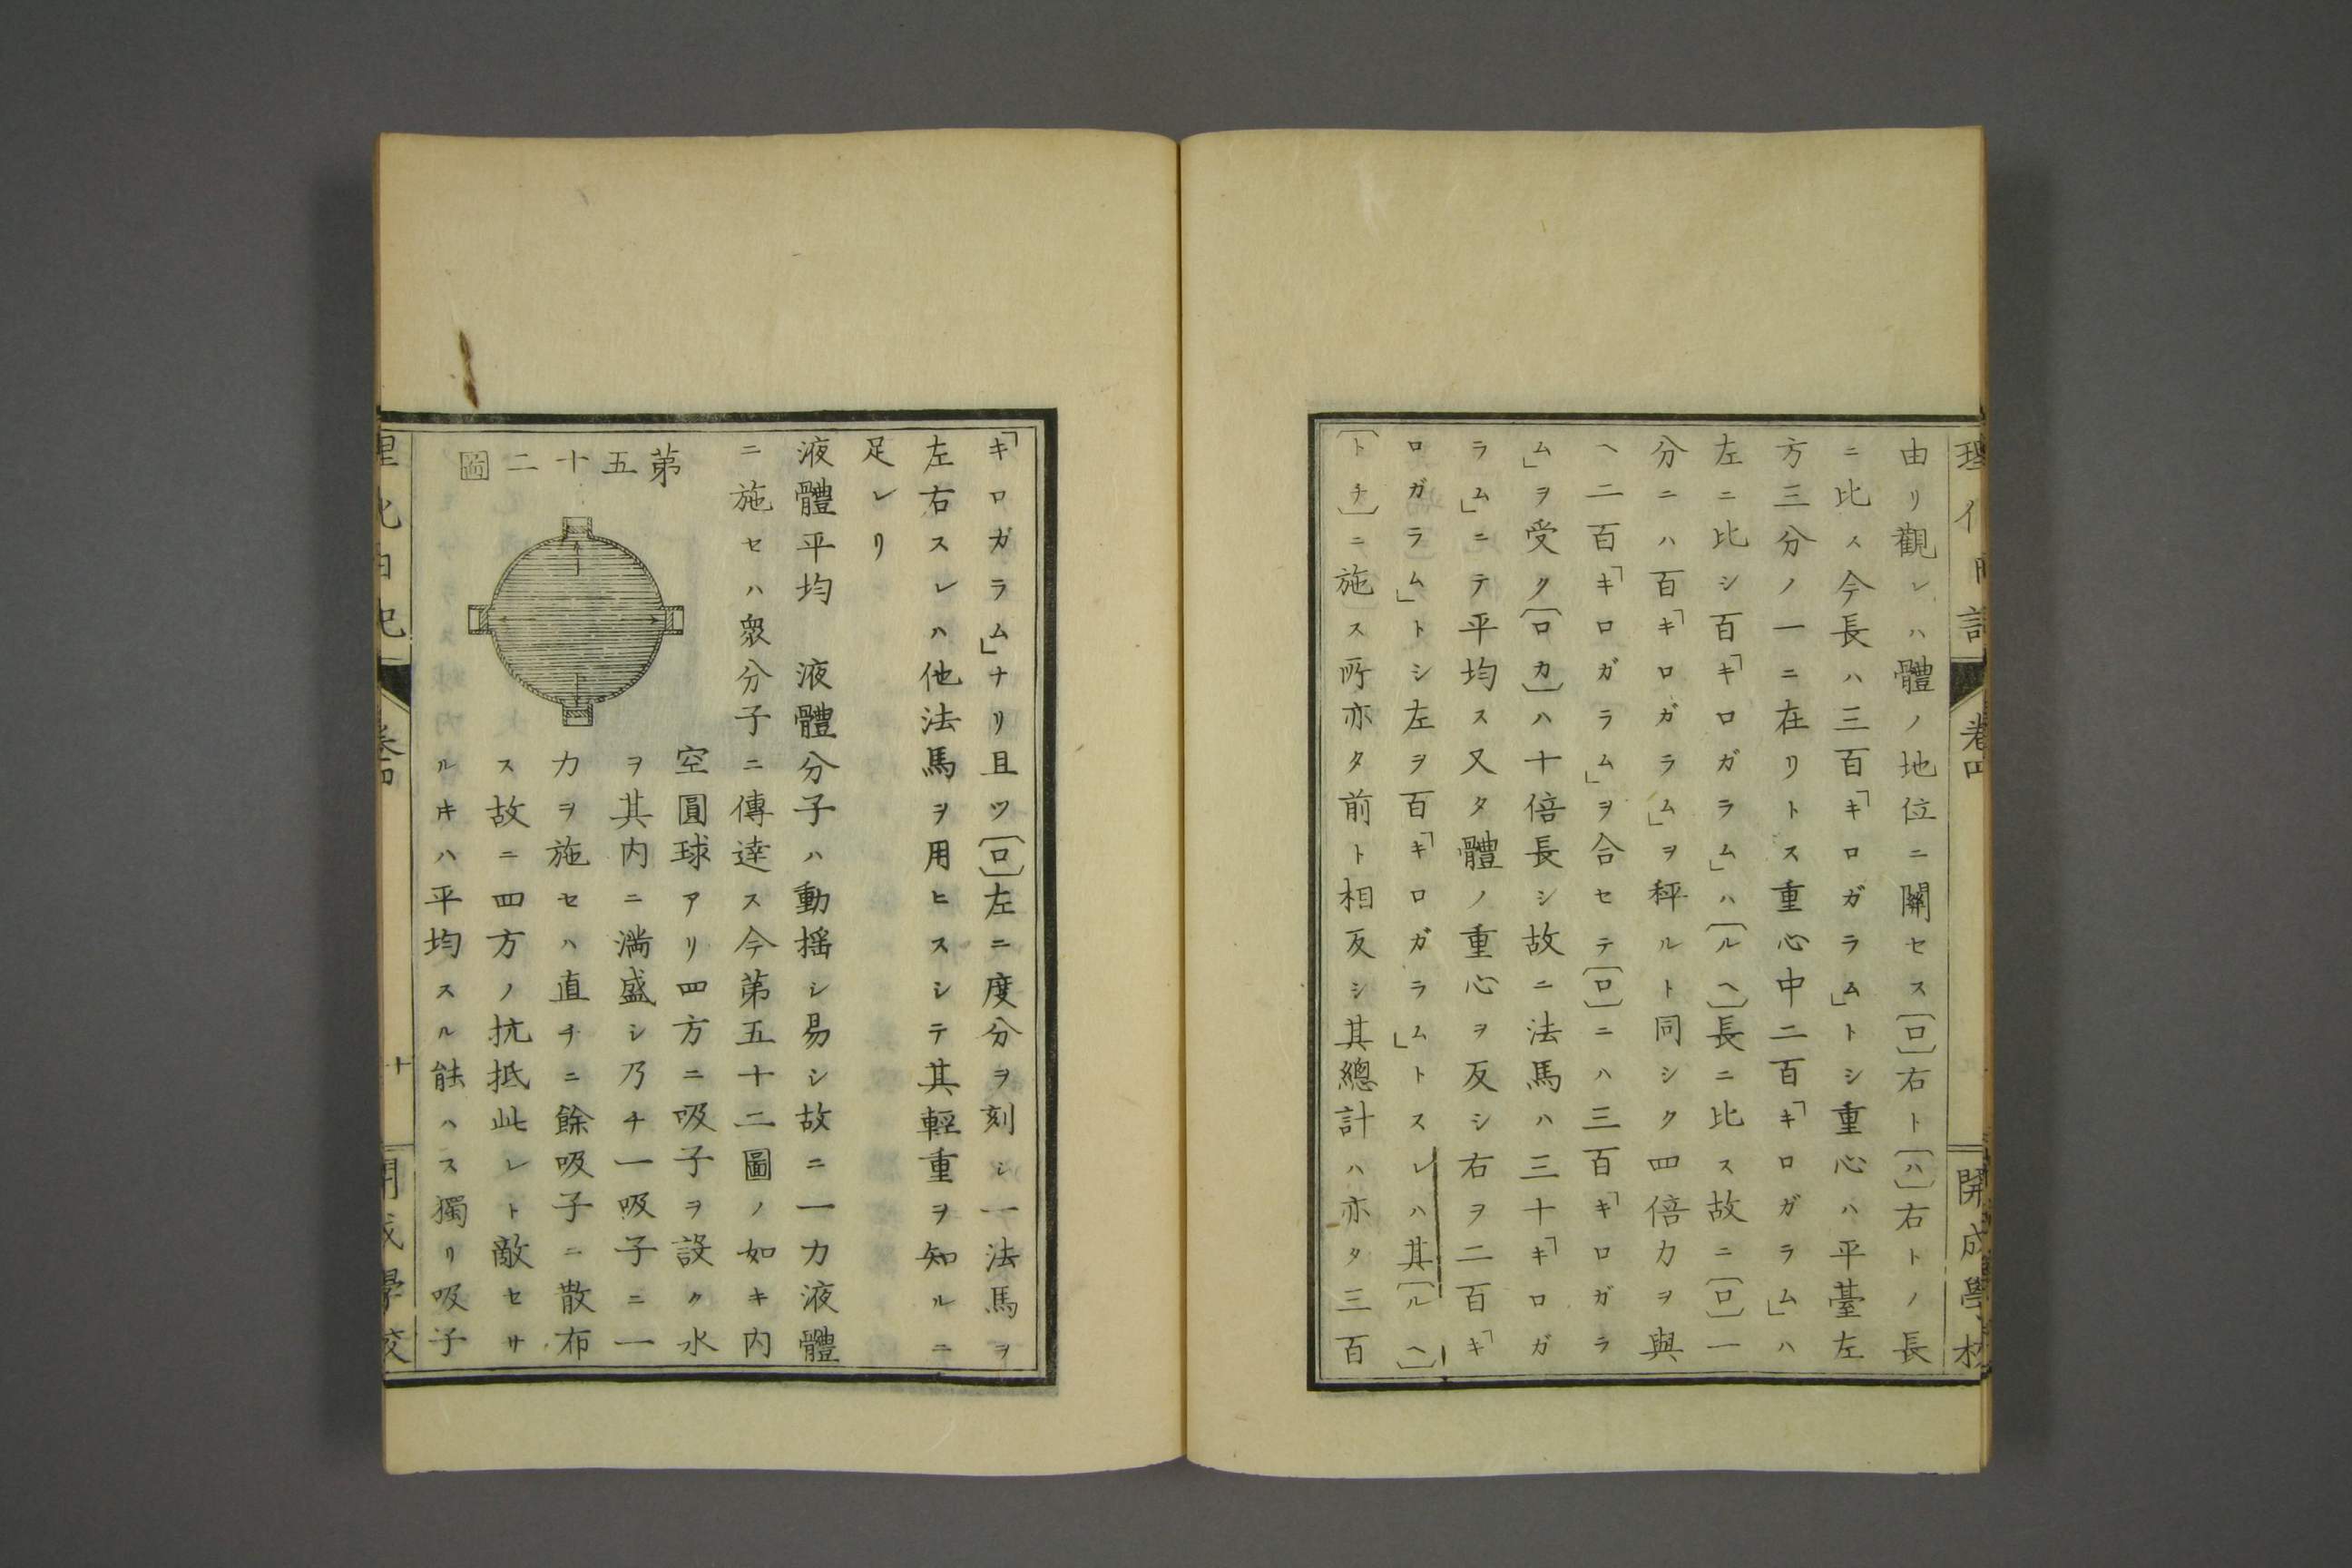 由リ觀レハ體ノ地位ニ關セス〔口〕右ト〔ハ〕右トノ長
ニ比ス今長ハ三百「キロガラム」トシ重心ハ平臺左
方三分ノ一ニ在リトス重心中二百「キロガラム」ハ
左ニ比シ百「キロガラム」ハ〔ルヘ〕長ニ比ス故ニ〔口〕一
分ニハ百「キロガラム」ヲ秤ルト同シク四倍力ヲ與
ヘ二百「キロガラム」ヲ合セテ〔口〕ニハ三百「キロガラ
ム」ヲ受ク〔ロカ〕ハ十倍長シ故ニ法馬ハ三十「キロガ
ラム」ニテ平均ス又タ體ノ重心ヲ反シ右ヲ二百「キ
ロガラム」トシ左ヲ百「キロガラム」トスレハ其〔ルヘ〕
〔トチ〕ニ施ス所亦タ前ト相反シ其總計ハ亦タ三百
卷四
開成學校
「キロガラム」ナリ且ツ〔口〕左ニ度分ヲ刻シ一法馬ヲ
左右スレハ他法馬ヲ用ヒスシテ其輕重ヲ知ルニ
足レリ
液體平均 液體分子ハ動揺シ易シ故ニ一力液體
ニ施セハ衆分子ニ傳達ス今第五十二圖ノ如キ内
第五十二圖
空圓球アリ四方ニ吸子ヲ設ク水
ヲ其内ニ滿盛シ乃チ一吸子ニ一
力ヲ施セハ直チニ餘吸子ニ散布
ス故ニ四方ノ抗抵此レト敵セサ
ルキハ平均スル能ハス獨リ吸子
卷四
十
開成學校